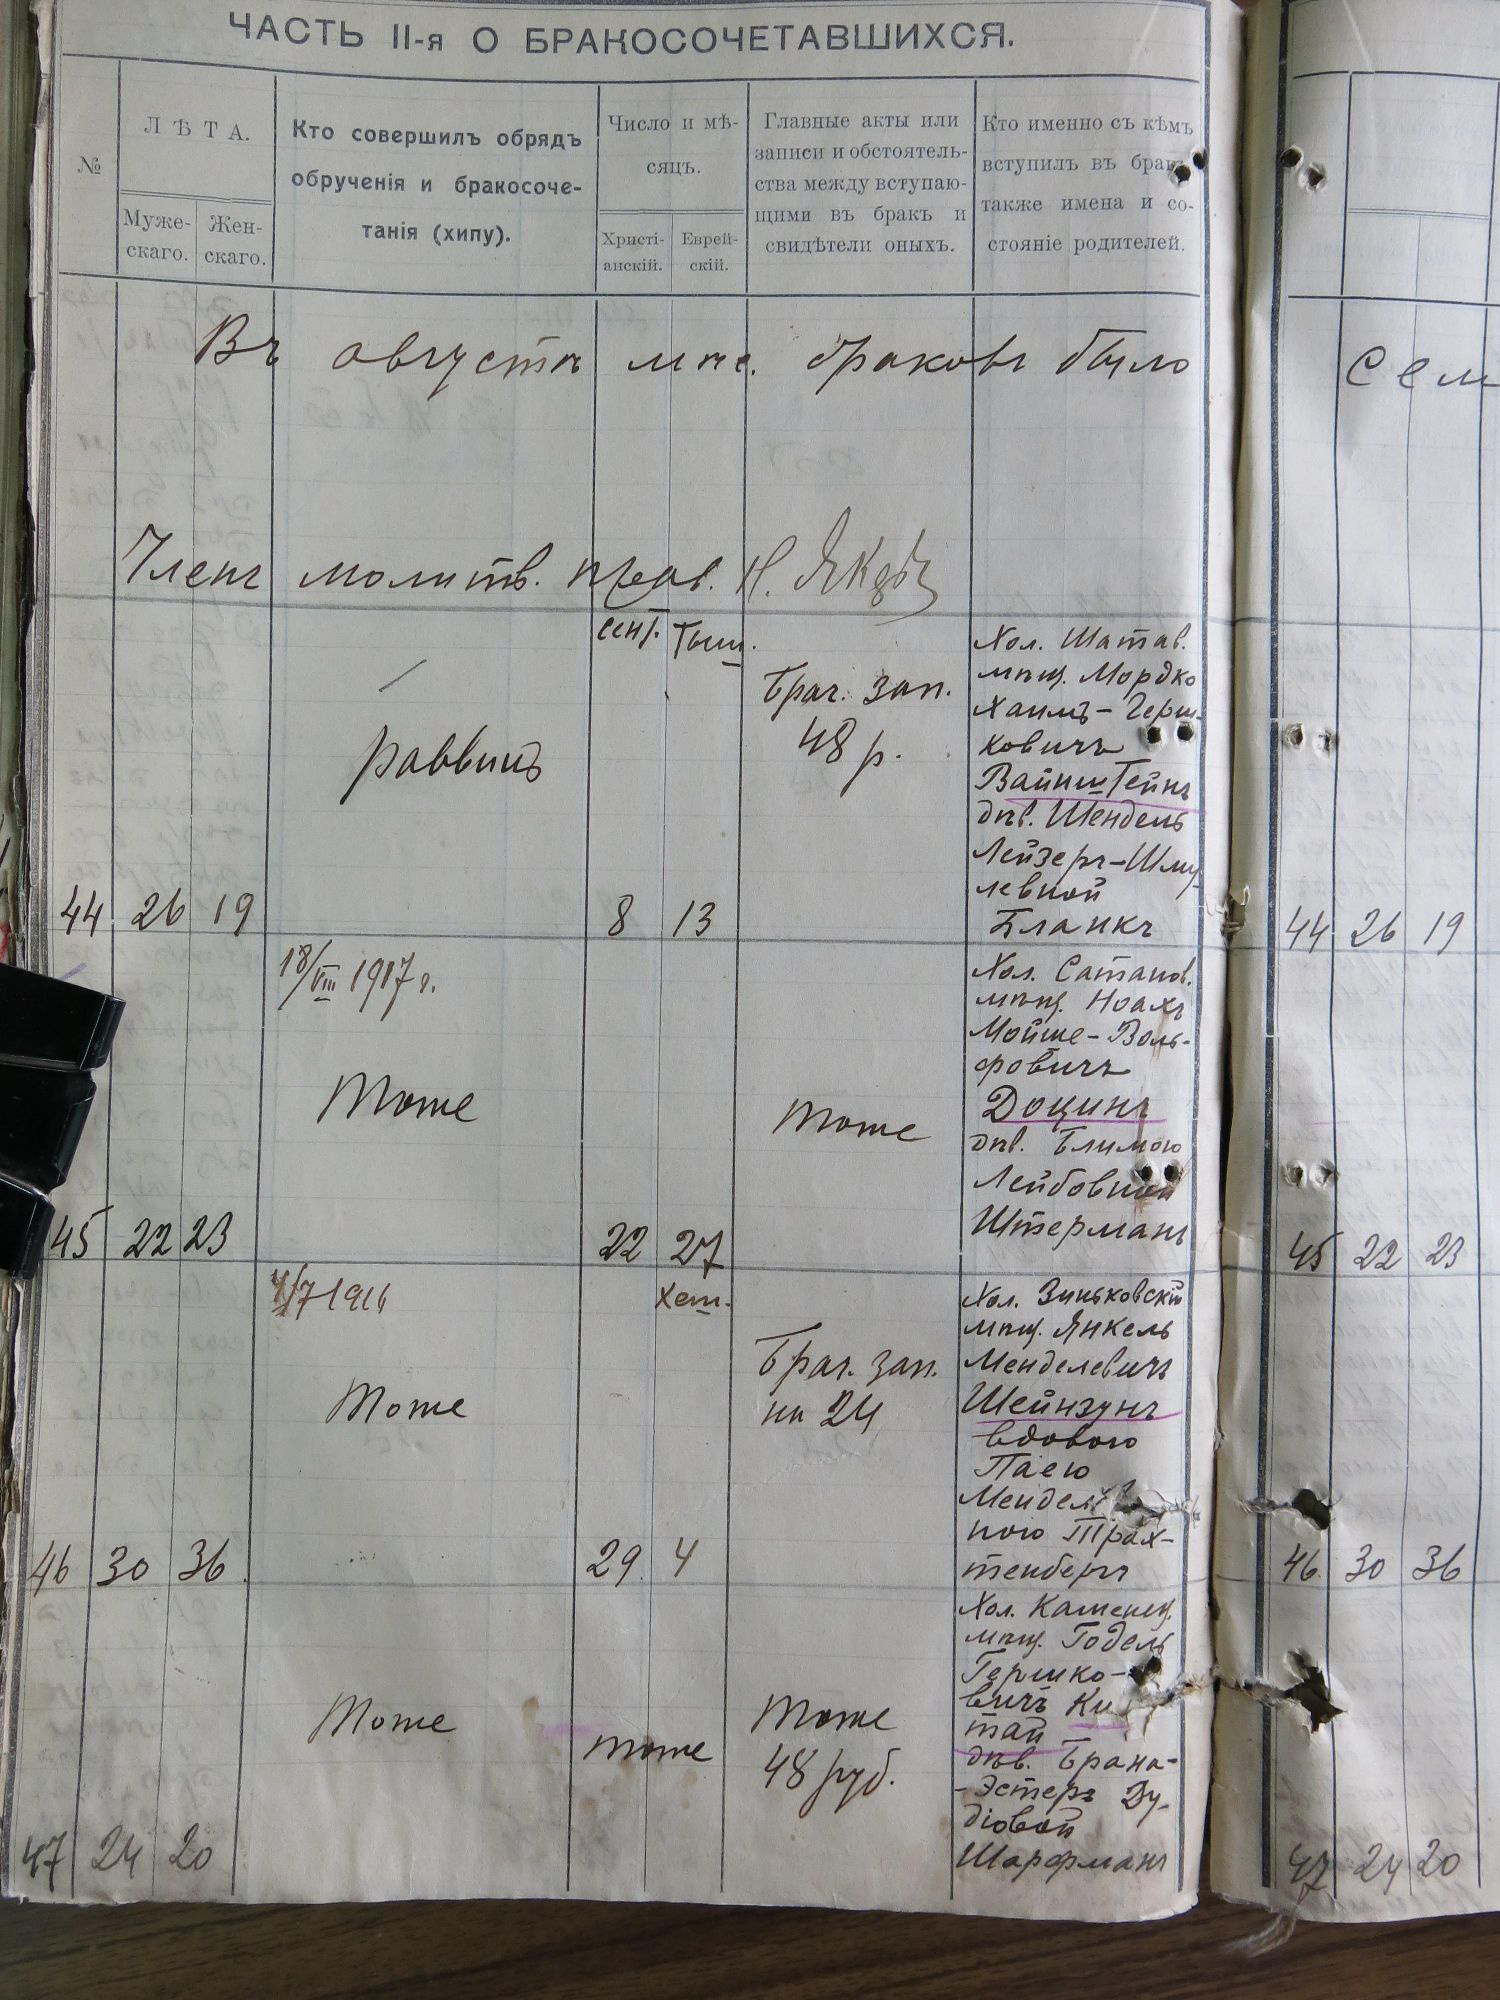 ЧАСТЬ II-я О БРАКОСОЧЕТАВШИХСЯ.
№
ЛѢТА.
Муже-
скаго.
Жен-
скаго.
Кто совершилъ обрядъ
обрученія и бракосоче-
танія (хипу).
Число и мѣ-
сяцъ.
Христі-
анскій.
Еврей-
скій.
Главные акты или
записи и обстоятель-
ства между вступаю-
щими въ бракъ и
свидѣтели оныхъ.
Кто именно съ кѣмъ
вступилъ въ бракъ
также имена и со-
стояніе родителей.
Въ августѣ мѣс. браковъ было
Сем
Членъ молитв. прав. Н.
сент. Тыш.
44 26 19
раввинъ
8 13
Брач. зап.
48 р.
Хол. Шатав.
мѣщ. Мордко
Хаимъ-Герш-
ковичъ
Вайнштейнъ
дѣв. Шендель
Лейзеръ-Шму-
левной
Бланкъ
44 26 19
45 22 23
18/VIII 1917 г.
Тоже
22 27
Тоже
Хол. Сатанов.
мѣщ. Ноахъ
Мойше-Воль-
фовичъ
Доцинъ
дѣв. Блимою
Лейбовной
Штерманъ
45 22 23
46 30 36
4/7 1916
Тоже
Хеш.
29 4
Брач. зап.
на 24
Хол. Зиньковскій
мѣщ. Янкель
Менделевичъ
Шейнзунъ
вдовою
Паею
Мендел
ною Трах-
тенбергъ
46 30 36
47 24 20
Тоже
тоже
Тоже
48 руб.
Хол. Каменец.
мѣщ. Годель
Гершко-
вичъ Ки
тай
дѣв. Брана-
-Эстеръ Ду-
діовой
Шарфманъ
47 24 20